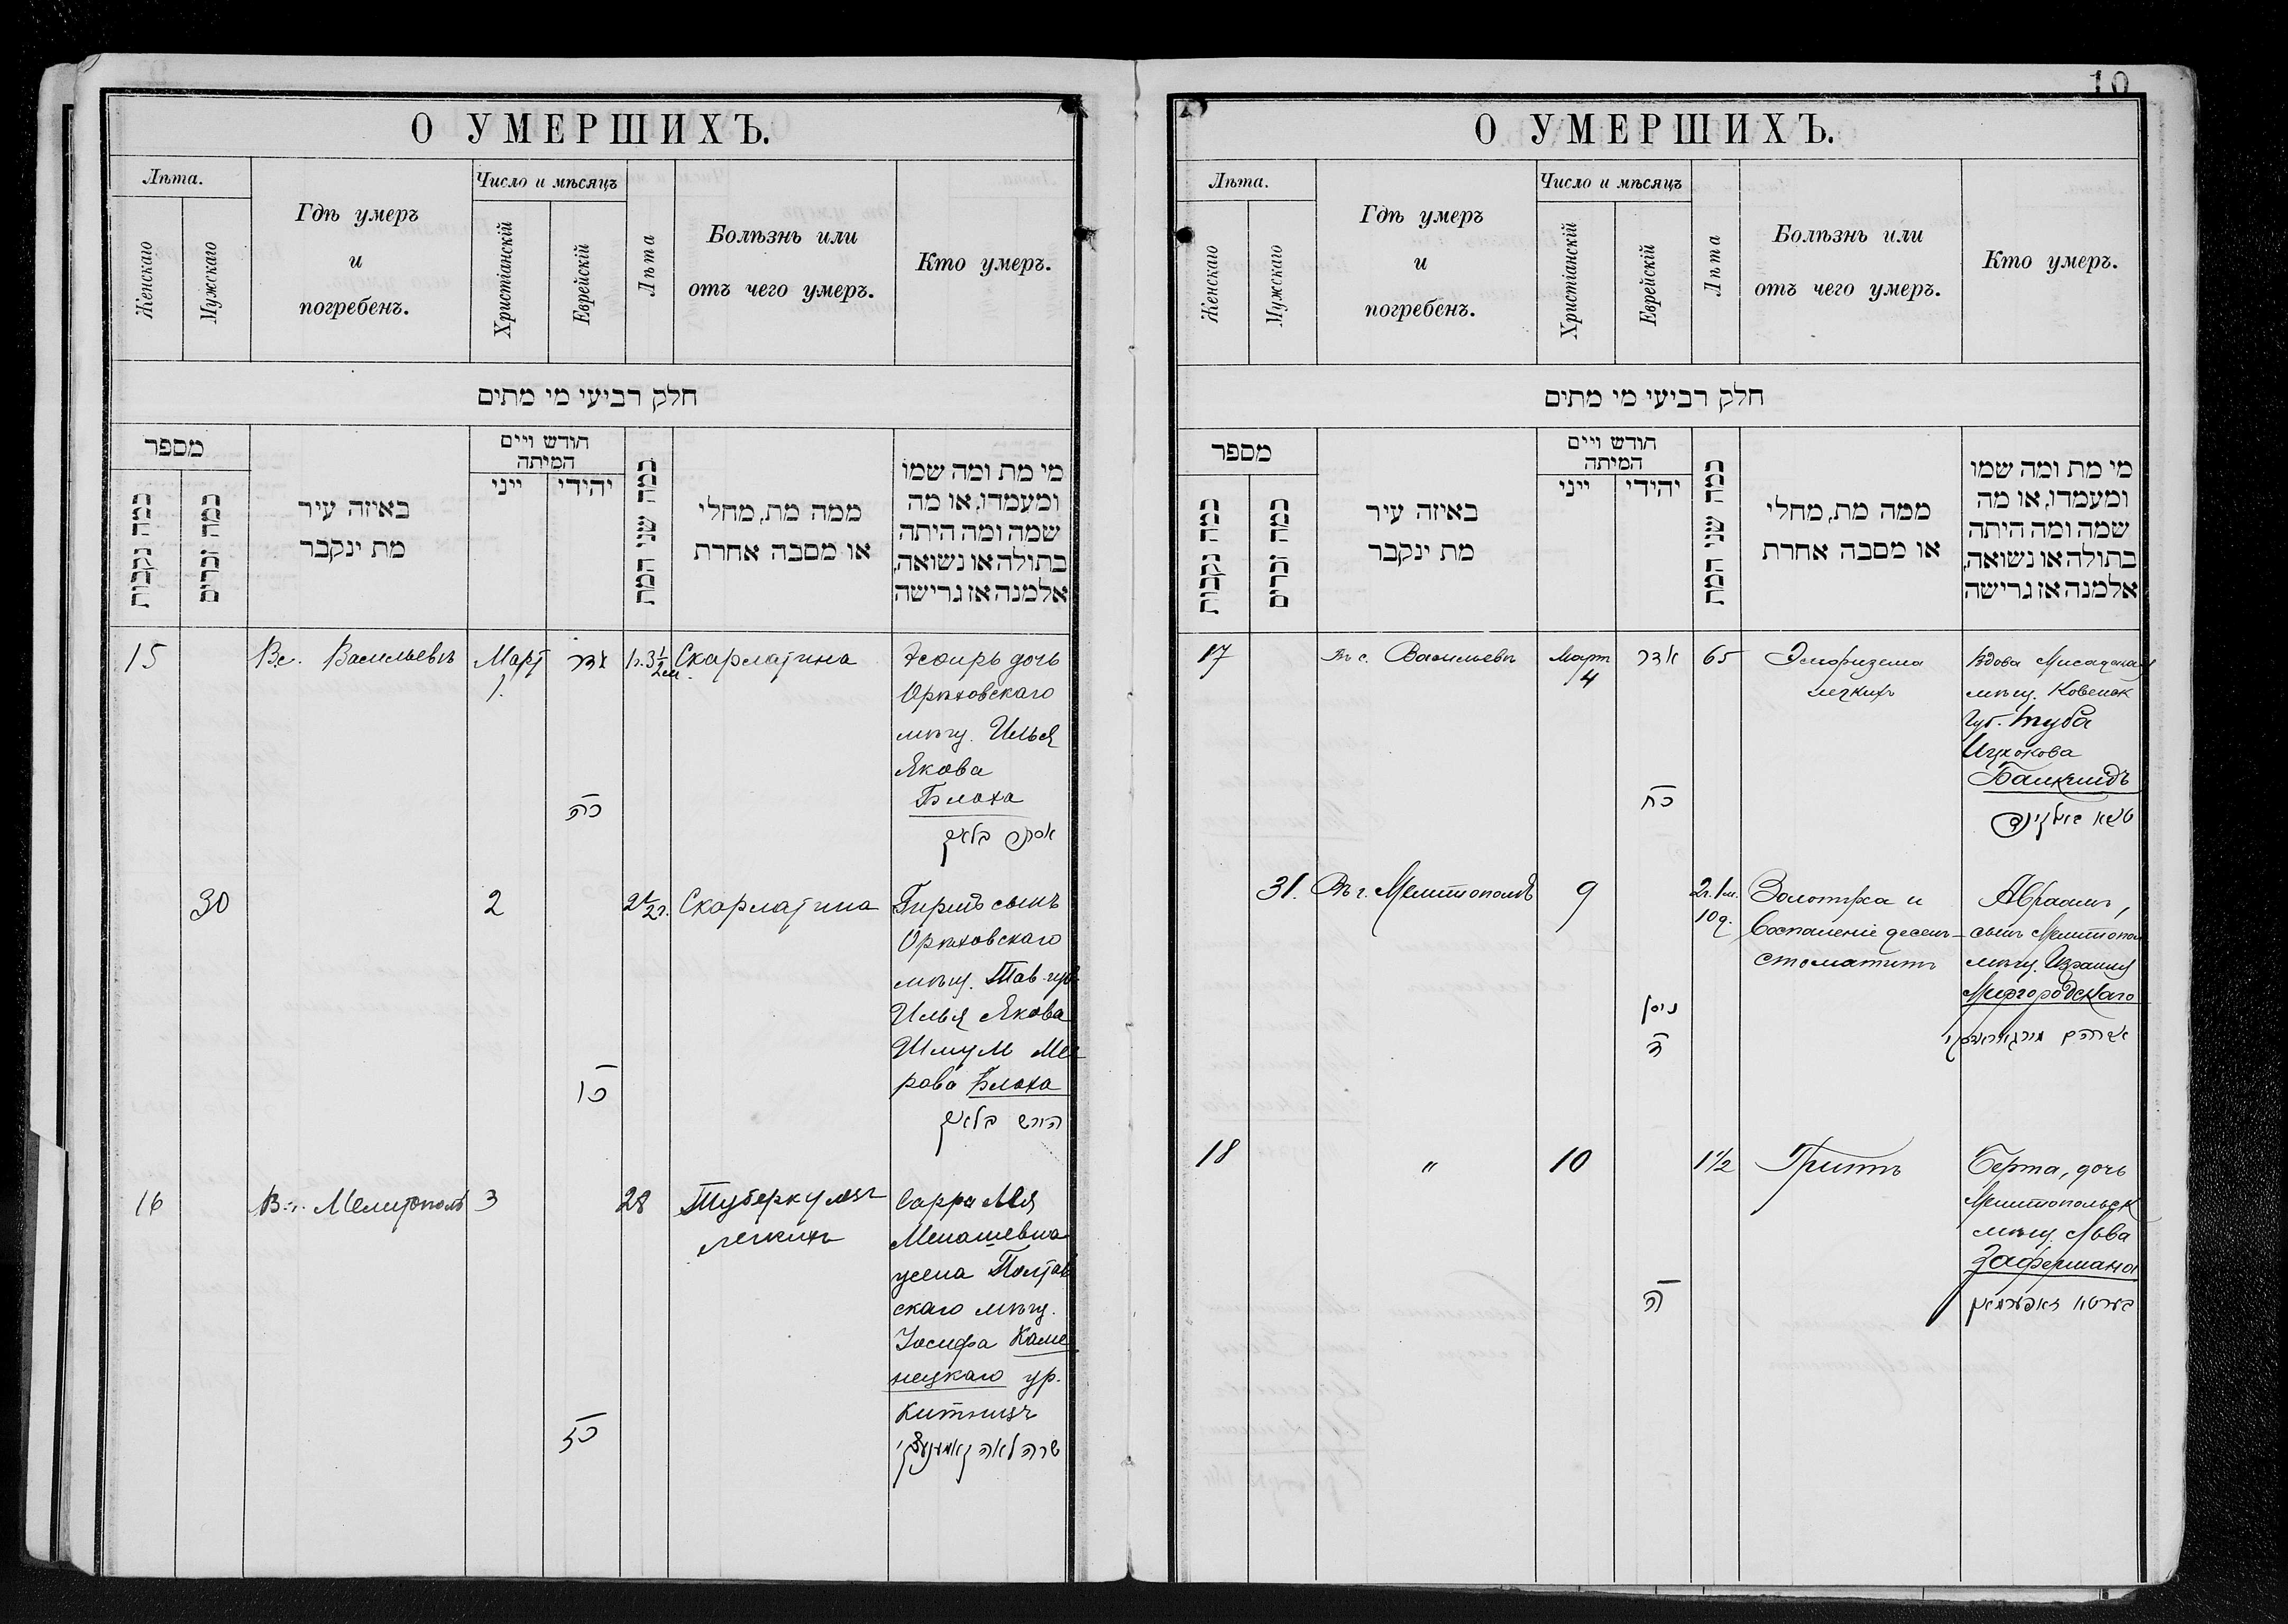 10
О УМЕРШИХЪ.
Лѣта.
Женскаго
Мужскаго
Гдѣ умеръ
и
погребенъ.
Число и мѣсяцъ
Христіанскій
Еврейскій
Лѣта
Болѣзнь или
отъ чего умеръ.
Кто умеръ.
חלק רביעי מי מתים
מספר
כמה נקבות
כמה זכרים
באיזה עיר
מת ינקבר
חודש ויים
המיתה
ייני
יהידי
כמה שני המת
ממה מת, מחלי
או מסבה אחרת
מי מת ומה שמו
ומעמדו, או מה
שמה ומה היתה
בתולה או נשואה,
אלמנה אז גרישה
15
Вс. Васильевкѣ
Март
1.
אדר
כה
1г. 3 1/2 м.
Скарлатина
Эсѳирь дочь
Орѣховскаго
мѣщ. Илья
Якова
Блоха
אסתר בלאך
30
2
כו
2 1/2 г.
Скарлатина
Гиршъ сынъ
Орѣховскаго
мѣщ. Тав. губ.
Илья Якова
Шмуль Ме
рова Блоха
הירש בלאך
16
В г. Мелитополѣ
3
כז
28
Туберкулезъ
легкихъ
Сарра Лея
Менашевна
жена Полтав
скаго мѣщ.
Іосифа Каме
нецкаго ур.
Китницъ
שרה לאה קאמענעצקי
О УМЕРШИХЪ.
Лѣта.
Женскаго
Мужскаго
Гдѣ умеръ
и
погребенъ.
Число и мѣсяцъ
Христіанскій
Еврейскій
Лѣта
Болѣзнь или
отъ чего умеръ.
Кто умеръ.
חלק רביעי מי מתים
מספר
כמה נקבות
כמה זכרים
באיזה עיר
מת ינקבר
חודש ויים
המיתה
ייני
יהידי
כמה שני המת
ממה מת, מחלי
או מסבה אחרת
מי מת ומה שמו
ומעמדו, או מה
שמה ומה היתה
בתולה או נשואה,
אלמנה אז גרישה
17
Въ с. Васильевкѣ
Март
4
אדר
כח
65
Эмфизема
легкихъ
Вдова
мѣщ. Ковенск
Губ. Туба
Ицхокова
31.
Въ г. Мелитополѣ
9
ניסן
ד
2г. 1 м.
10 д.
Золотуха и
Воспаленіе десенъ –
стоматитъ
Авраамъ,
сынъ Мелитопол
мѣщ. Израиля
Миргородскаго
אברהם מירגאראדסקי
18
"
10
ה
1 1/2
Грипъ
Берта, дочь
Мелитопольск
мѣщ. Лова
Зафермана
בערטא זאפערמאן